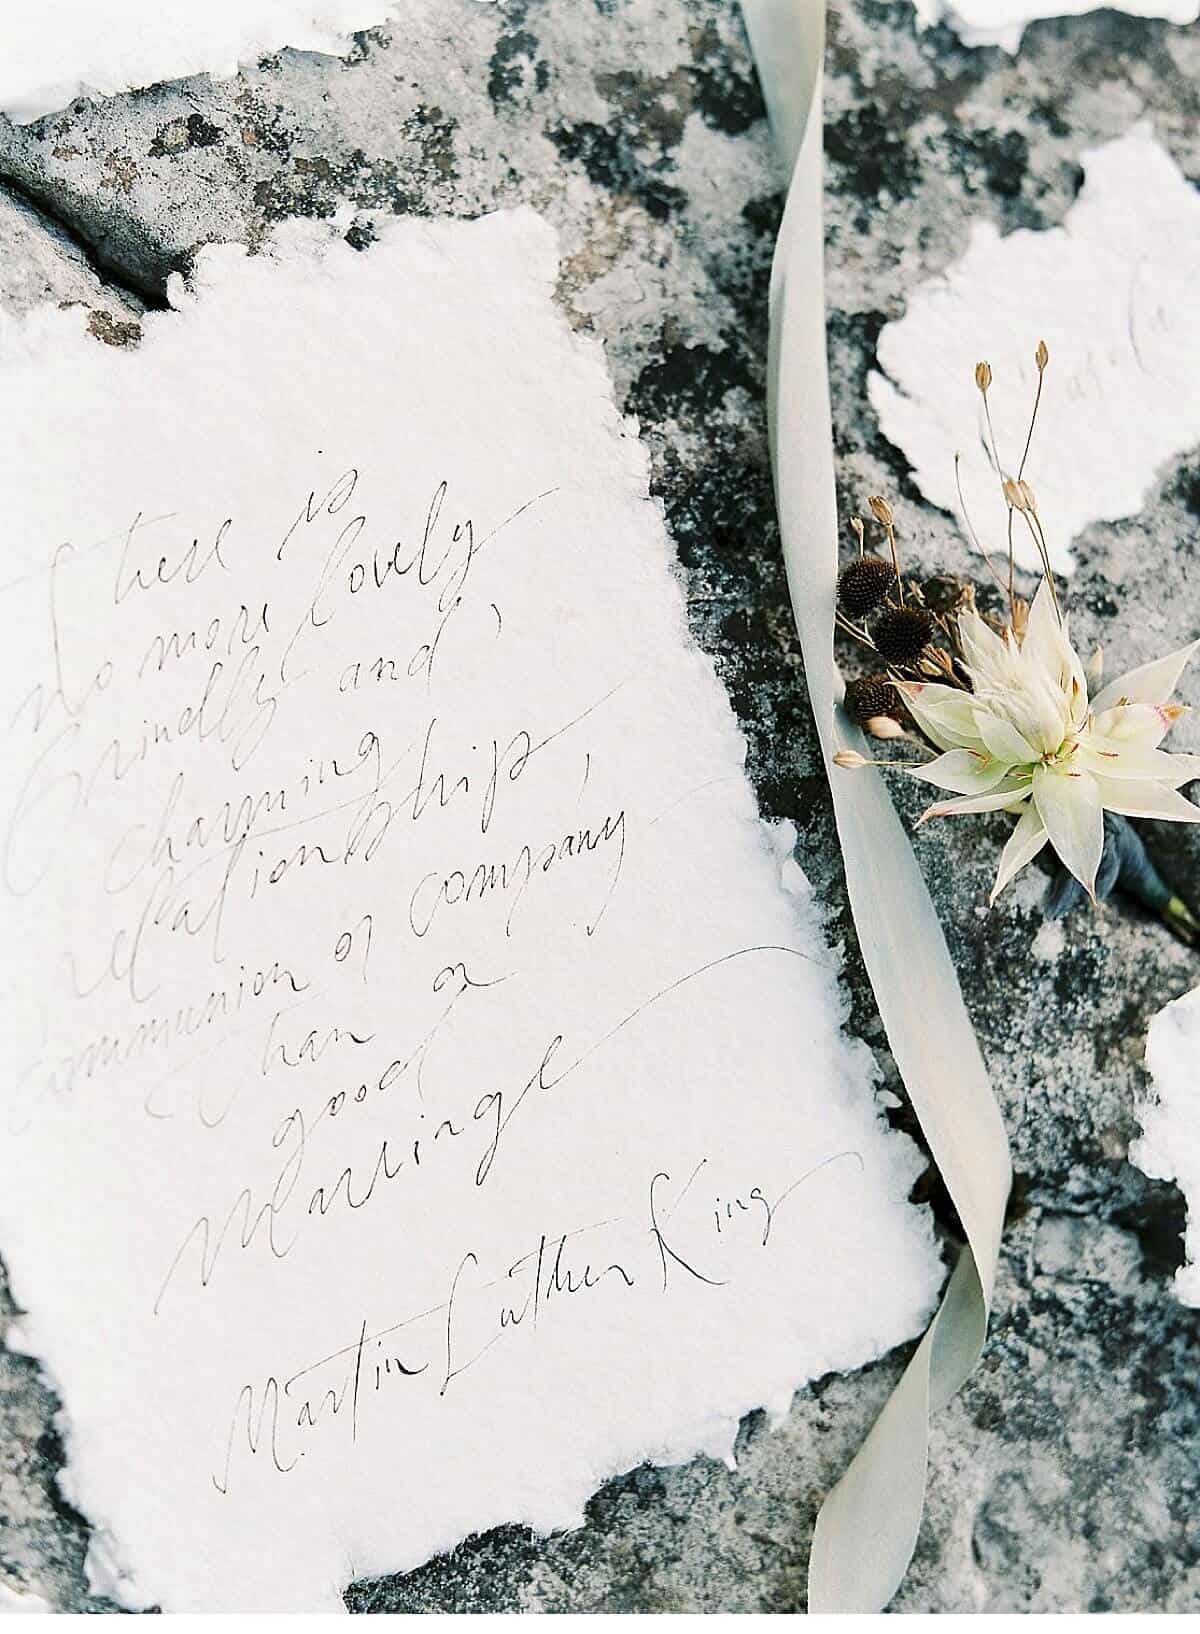 there is
no more lovely
frindly and,
charming
relationship,
communion or company
than a
good
Marriage
Martin Luther King